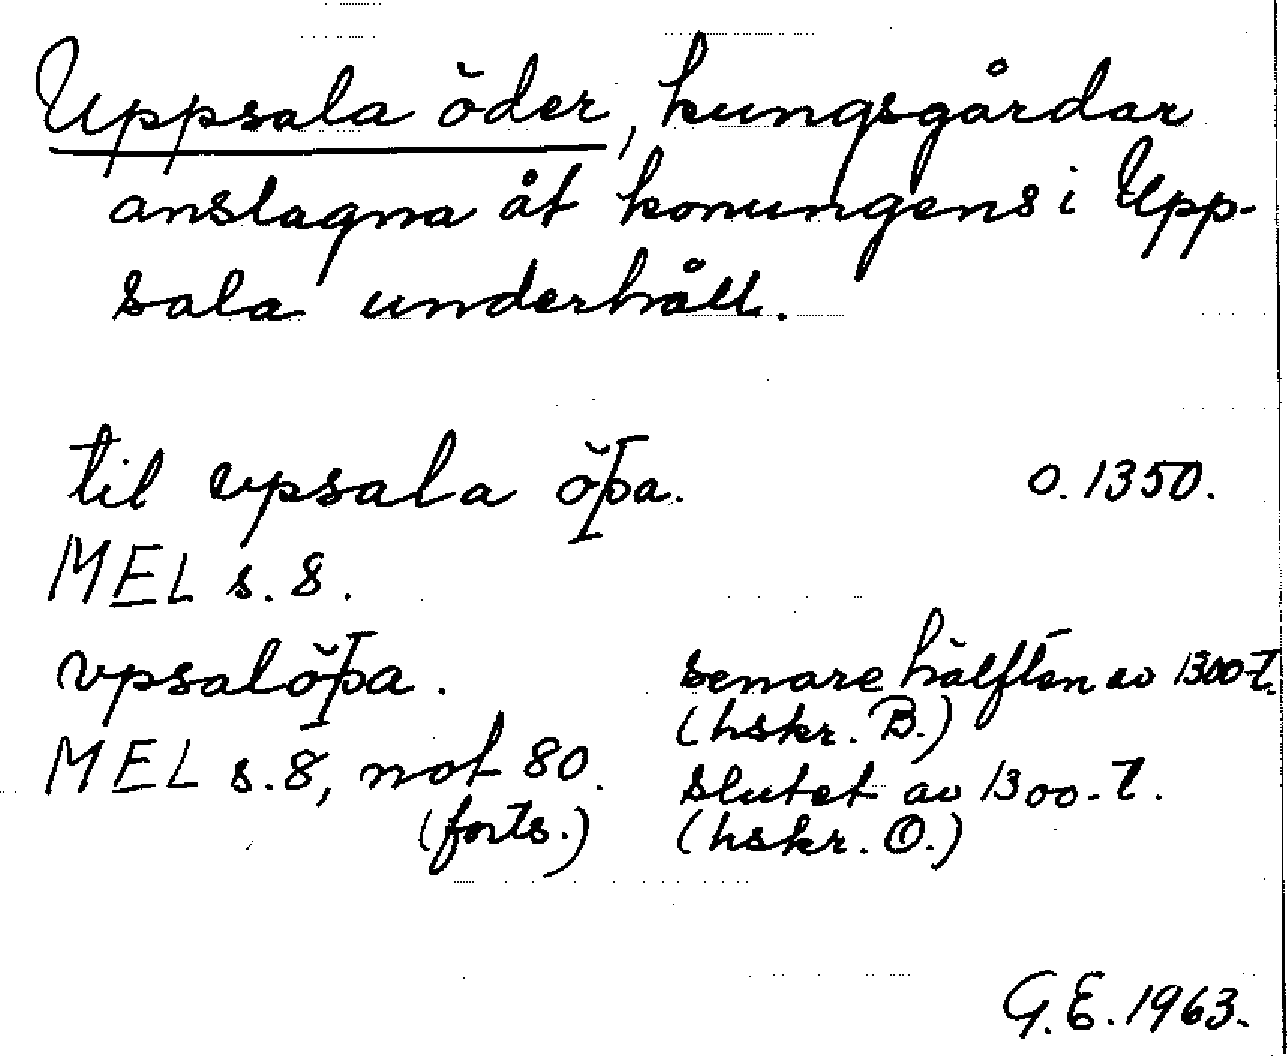 Uppsala öder, kungsgårdar
anslagna åt konungens i Upp-
sala underhåll.
til vpsala öþa. o. 1350.
MEL s. 8.
vpsalöþa. senare hälften av 1300-t.
(hskr. B.)
MEL s. 8, not 80. slutet av 1300-t.
(forts.) (hskr. O.)
G.E. 1963.